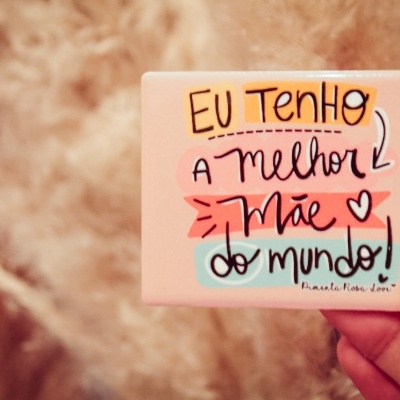 EU TENHO
A melhor
Mãe
do mundo!
Pimenta Rosa Love